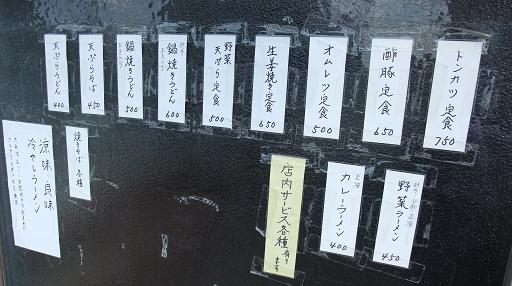 トンカツ定食 750
酢豚定食 650
オムレツ定食 500
生姜焼き定食 650
野菜
天ぷら定食 500
鍋焼きうどん 600
鍋焼きうどん 500
天ぷらそば 450
天ぷらうどん 400
野菜ラーメン 450
カレーラーメン 400
店内サービス各種有ります
焼きそば 各種
涼味 良味
冷やしラーメン